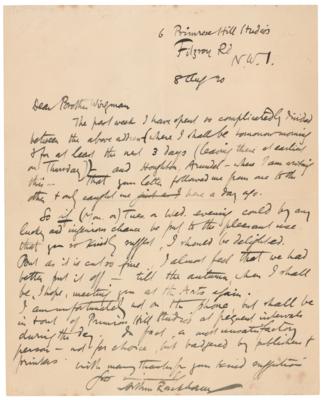 6 Primrose Hill Studios
Fitzroy Rd
N.W.1.
8 Aug 20
Dear Brother Wingman
The past week I have spent so complicatedly divided
between the above address (where I shall be tomorrow morning
& for at least the next 3 days (leaving there at earliest
on Thursday)) and Houghton, Arundel – where I am writing
this – that your letter followed me from one to the
other & only caught me here a day ago.
So if (Mon. or) Tues or Wed. evening could by any
lucky and ingenious chance be put to the pleasant use
that you so kindly suggest, I should be delighted.
But as it is cut so fine, I almost feel that we had
better put it off – till the autumn, when I shall
be, I hope, meeting you at the Arts again.
I am unfortunately not on the phone, but shall be
in & out of Primrose Hill Studios at frequent intervals
during the day. In fact, a most unsatisfactory
person – not for choice, but badgered by publishers &
printers. With many thanks for your kind suggestion
Yrs Arthur Rackham